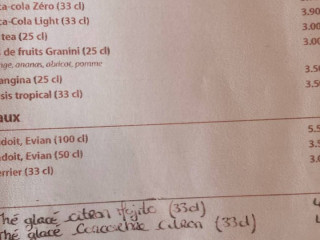 ca-cola Zéro (33 cl)
a-Cola Light (33 cl) 3.90
tea (25 cl) 3.00
de fruits Granini (25 cl) 3.00
ige, ananas, abricot, pomme
angina (25 cl) 3.5
sis tropical (33 cl) 3.5
aux
doit, Evian (100 cl) 5.5
doit, Evian (50 cl) 3.
errier (33 cl) 3.
hé glacé citron Mojito (33cl)
Thé glacé citron (33cl)